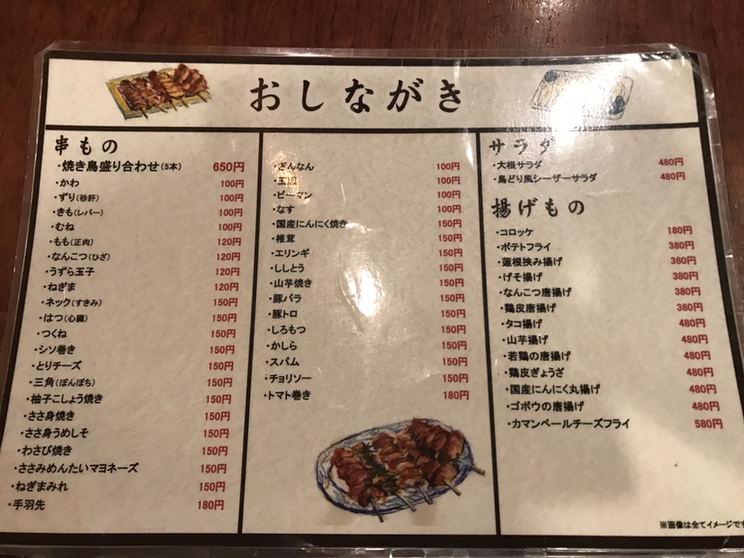 おしながき
串もの
・焼き鳥盛り合わせ(5本) 650円
・かわ 100円
・ずり(砂肝) 100円
・きも(レバー) 100円
・むね 100円
・もも(正肉) 120円
・なんこつ(ひざ) 120円
・うずら玉子 120円
・ねぎま 120円
・ネック(すきみ) 150円
・はつ(心臓) 150円
・つくね 150円
・シソ巻き 150円
・とりチーズ 150円
・三角(ぼんぼち) 150円
・柚子こしょう焼き 150円
・ささ身焼き 150円
・ささ身うめしそ 150円
・わさび焼き 150円
・ささみめんたいマヨネーズ 150円
・ねぎまみれ 150円
・手羽先 180円
・ぎんなん 100円
・玉葱 100円
・ピーマン 100円
・なす 100円
・国産にんにく焼き 150円
・椎茸 150円
・エリンギ 150円
・ししとう 150円
・山芋焼き 150円
・豚バラ 150円
・豚トロ 150円
・しろもつ 150円
・かしら 150円
・スパム 150円
・チョリソー 150円
・トマト巻き 180円
サラダ
・大根サラダ 480円
・鳥どり風シーザーサラダ 480円
揚げもの
・コロッケ 180円
・ポテトフライ 380円
・蓮根挟み揚げ 380円
・げそ揚げ 380円
・なんこつ唐揚げ 380円
・鶏皮唐揚げ 380円
・タコ揚げ 480円
・山芋揚げ 480円
・若鶏の唐揚げ 480円
・鶏皮ぎょうざ 480円
・国産にんにく丸揚げ 480円
・ゴボウの唐揚げ 480円
・カマンベールチーズフライ 580円
※画像は全てイメージです